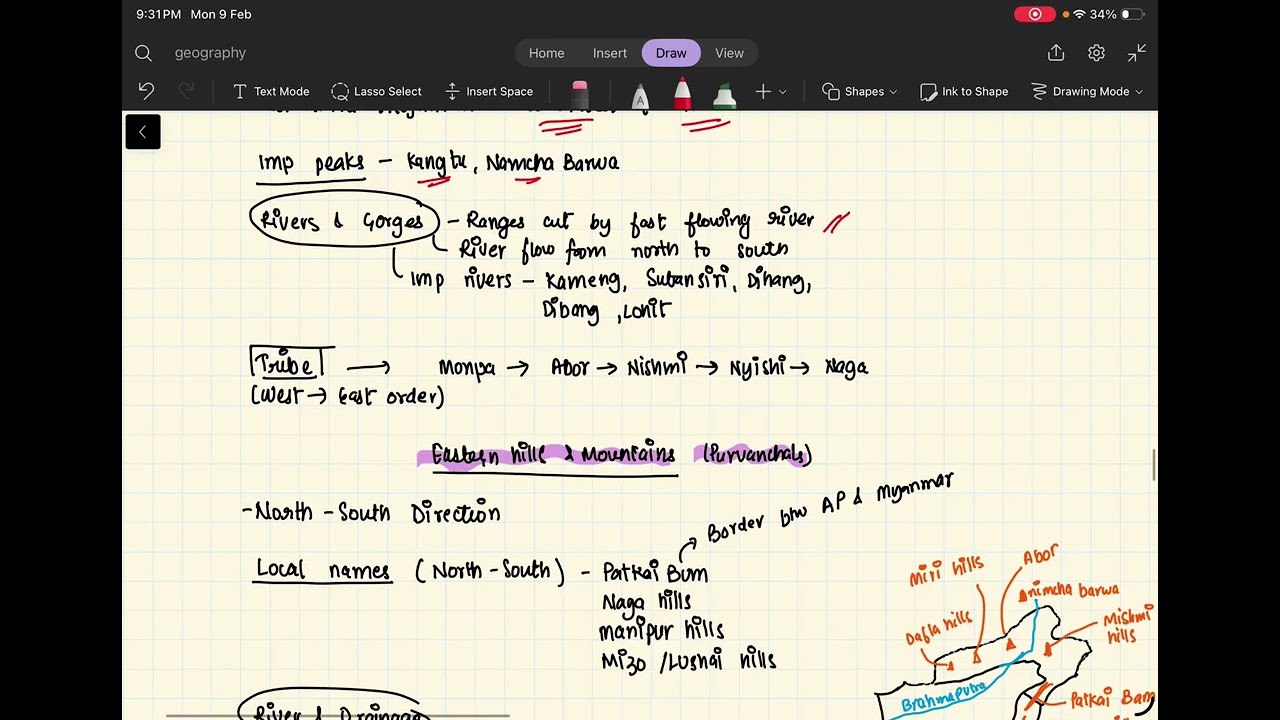 9:31PM Mon 9 Feb
34%
geography
Home Insert Draw View
Text Mode Lasso Select Insert Space Shapes Ink to Shape Drawing Mode
Imp peaks - Kangtu, Namcha Barwa
Rivers & Gorges - Ranges cut by fast flowing river
River flow from north to south
Imp rivers - Kameng, Subansiri, Dihang,
Dibang, Lohit
Tribe → Monpa → Abor → Nishmi → Nyishi → Naga
(West → East order)
Eastern hills & Mountains (Purvanchals)
- North - South Direction
Border btw AP & Myanmar
Local names (North - South) - Patkai Bum
Naga hills
manipur hills
Mizo / Lushai hills
Miri hills
Abor
nimcha barwa
Dafla hills
Mishmi hills
Brahmaputra
Patkai Bam
River & Drainage